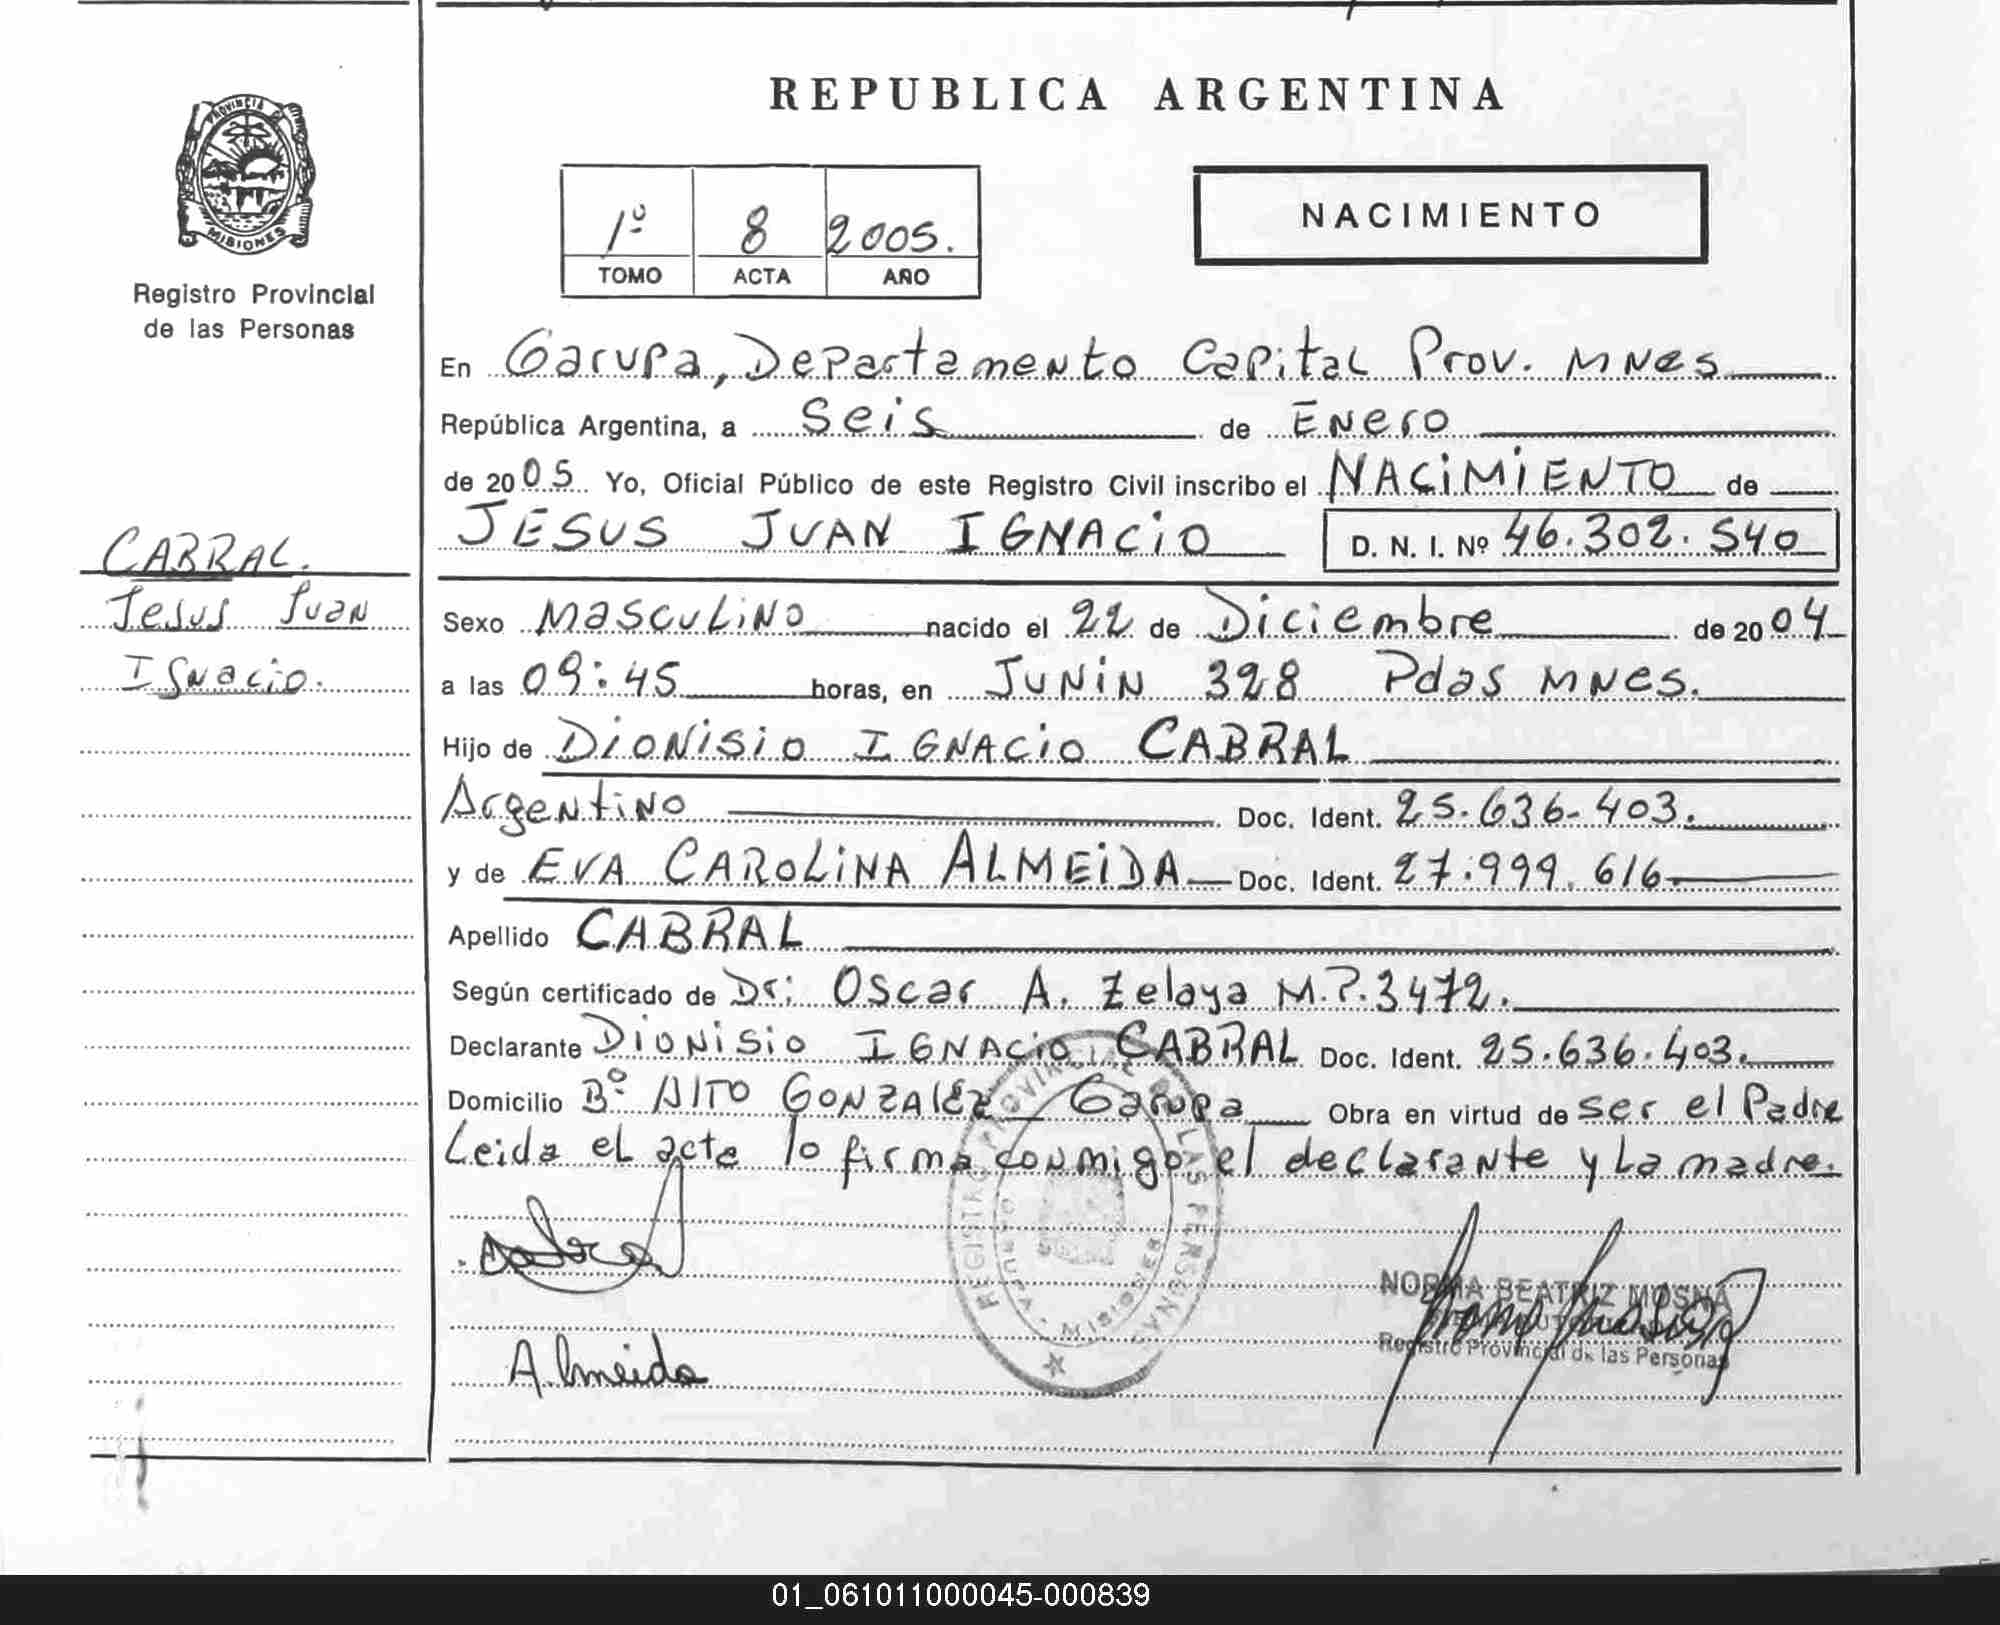 REPUBLICA ARGENTINA
PROVINCIA
MISIONES
Registro Provincial
de las Personas
1º 8 2005.
TOMO ACTA AÑO
NACIMIENTO
En Garupa, Departamento Capital Prov. MNes
República Argentina, a Seis de Enero
de 2005 Yo, Oficial Público de este Registro Civil inscribo el NACIMIENTO de
JESUS JUAN IGNACIO D. N. I. Nº 46.302.540
CABRAL.
Jesus Juan
Ignacio.
Sexo Masculino nacido el 22 de Diciembre de 2004
a las 09:45 horas, en JUNIN 328 Pdas MNes.
Hijo de Dionisio IGNACIO CABRAL
Argentino Doc. Ident. 25.636-403.
y de EVA CAROLINA ALMEIDA Doc. Ident. 27.999.616
Apellido CABRAL
Según certificado de Dr: Oscar A. Zelaya M.P.3472.
Declarante Dionisio IGNACIO CABRAL Doc. Ident. 25.636.403.
Domicilio Bº Alto GONZALEZ Garupa Obra en virtud de ser el Padre
Leida el acta lo firma conmigo el declarante y La madre.
REGISTRO PROVINCIAL DE LAS PERSONAS
MISIONES
NORMA BEATRIZ MOSNA
Registro Provincial de las Personas
Almeida
01_061011000045-000839